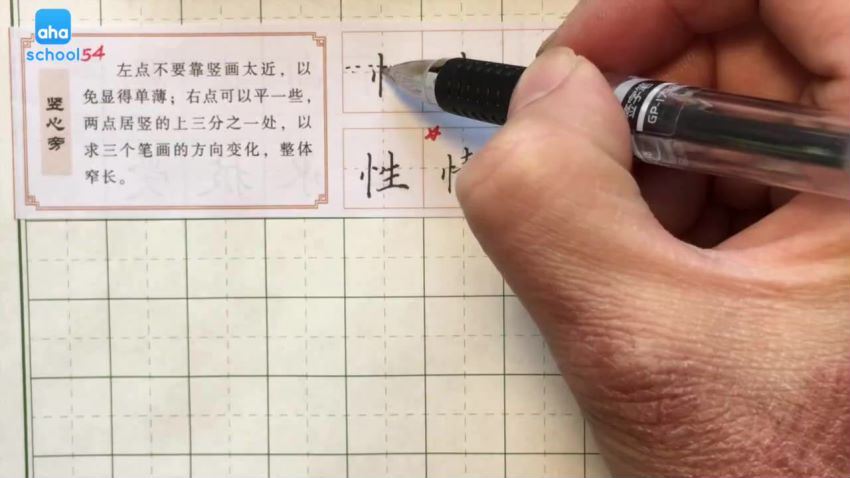 aha
school54
竖心旁
左点不要靠竖画太近，以
免显得单薄；右点可以平一些，
两点居竖的上三分之一处，以
求三个笔画的方向变化，整体
窄长。
忄
性
GP-1